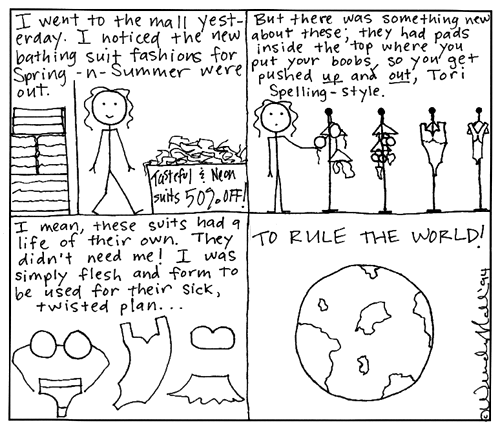 I went to the mall yest-
erday. I noticed the new
bathing suit fashions for
Spring-n-Summer were
out.
Tasteful & Neon
suits 50% OFF!
But there was something new
about these; they had pads
inside the top where you
put your boobs, so you get
pushed up and out, Tori
Spelling-style.
I mean, these suits had a
life of their own. They
didn't need me! I was
simply flesh and form to
be used for their sick,
twisted plan...
TO RULE THE WORLD!
©Wendy Hall '94